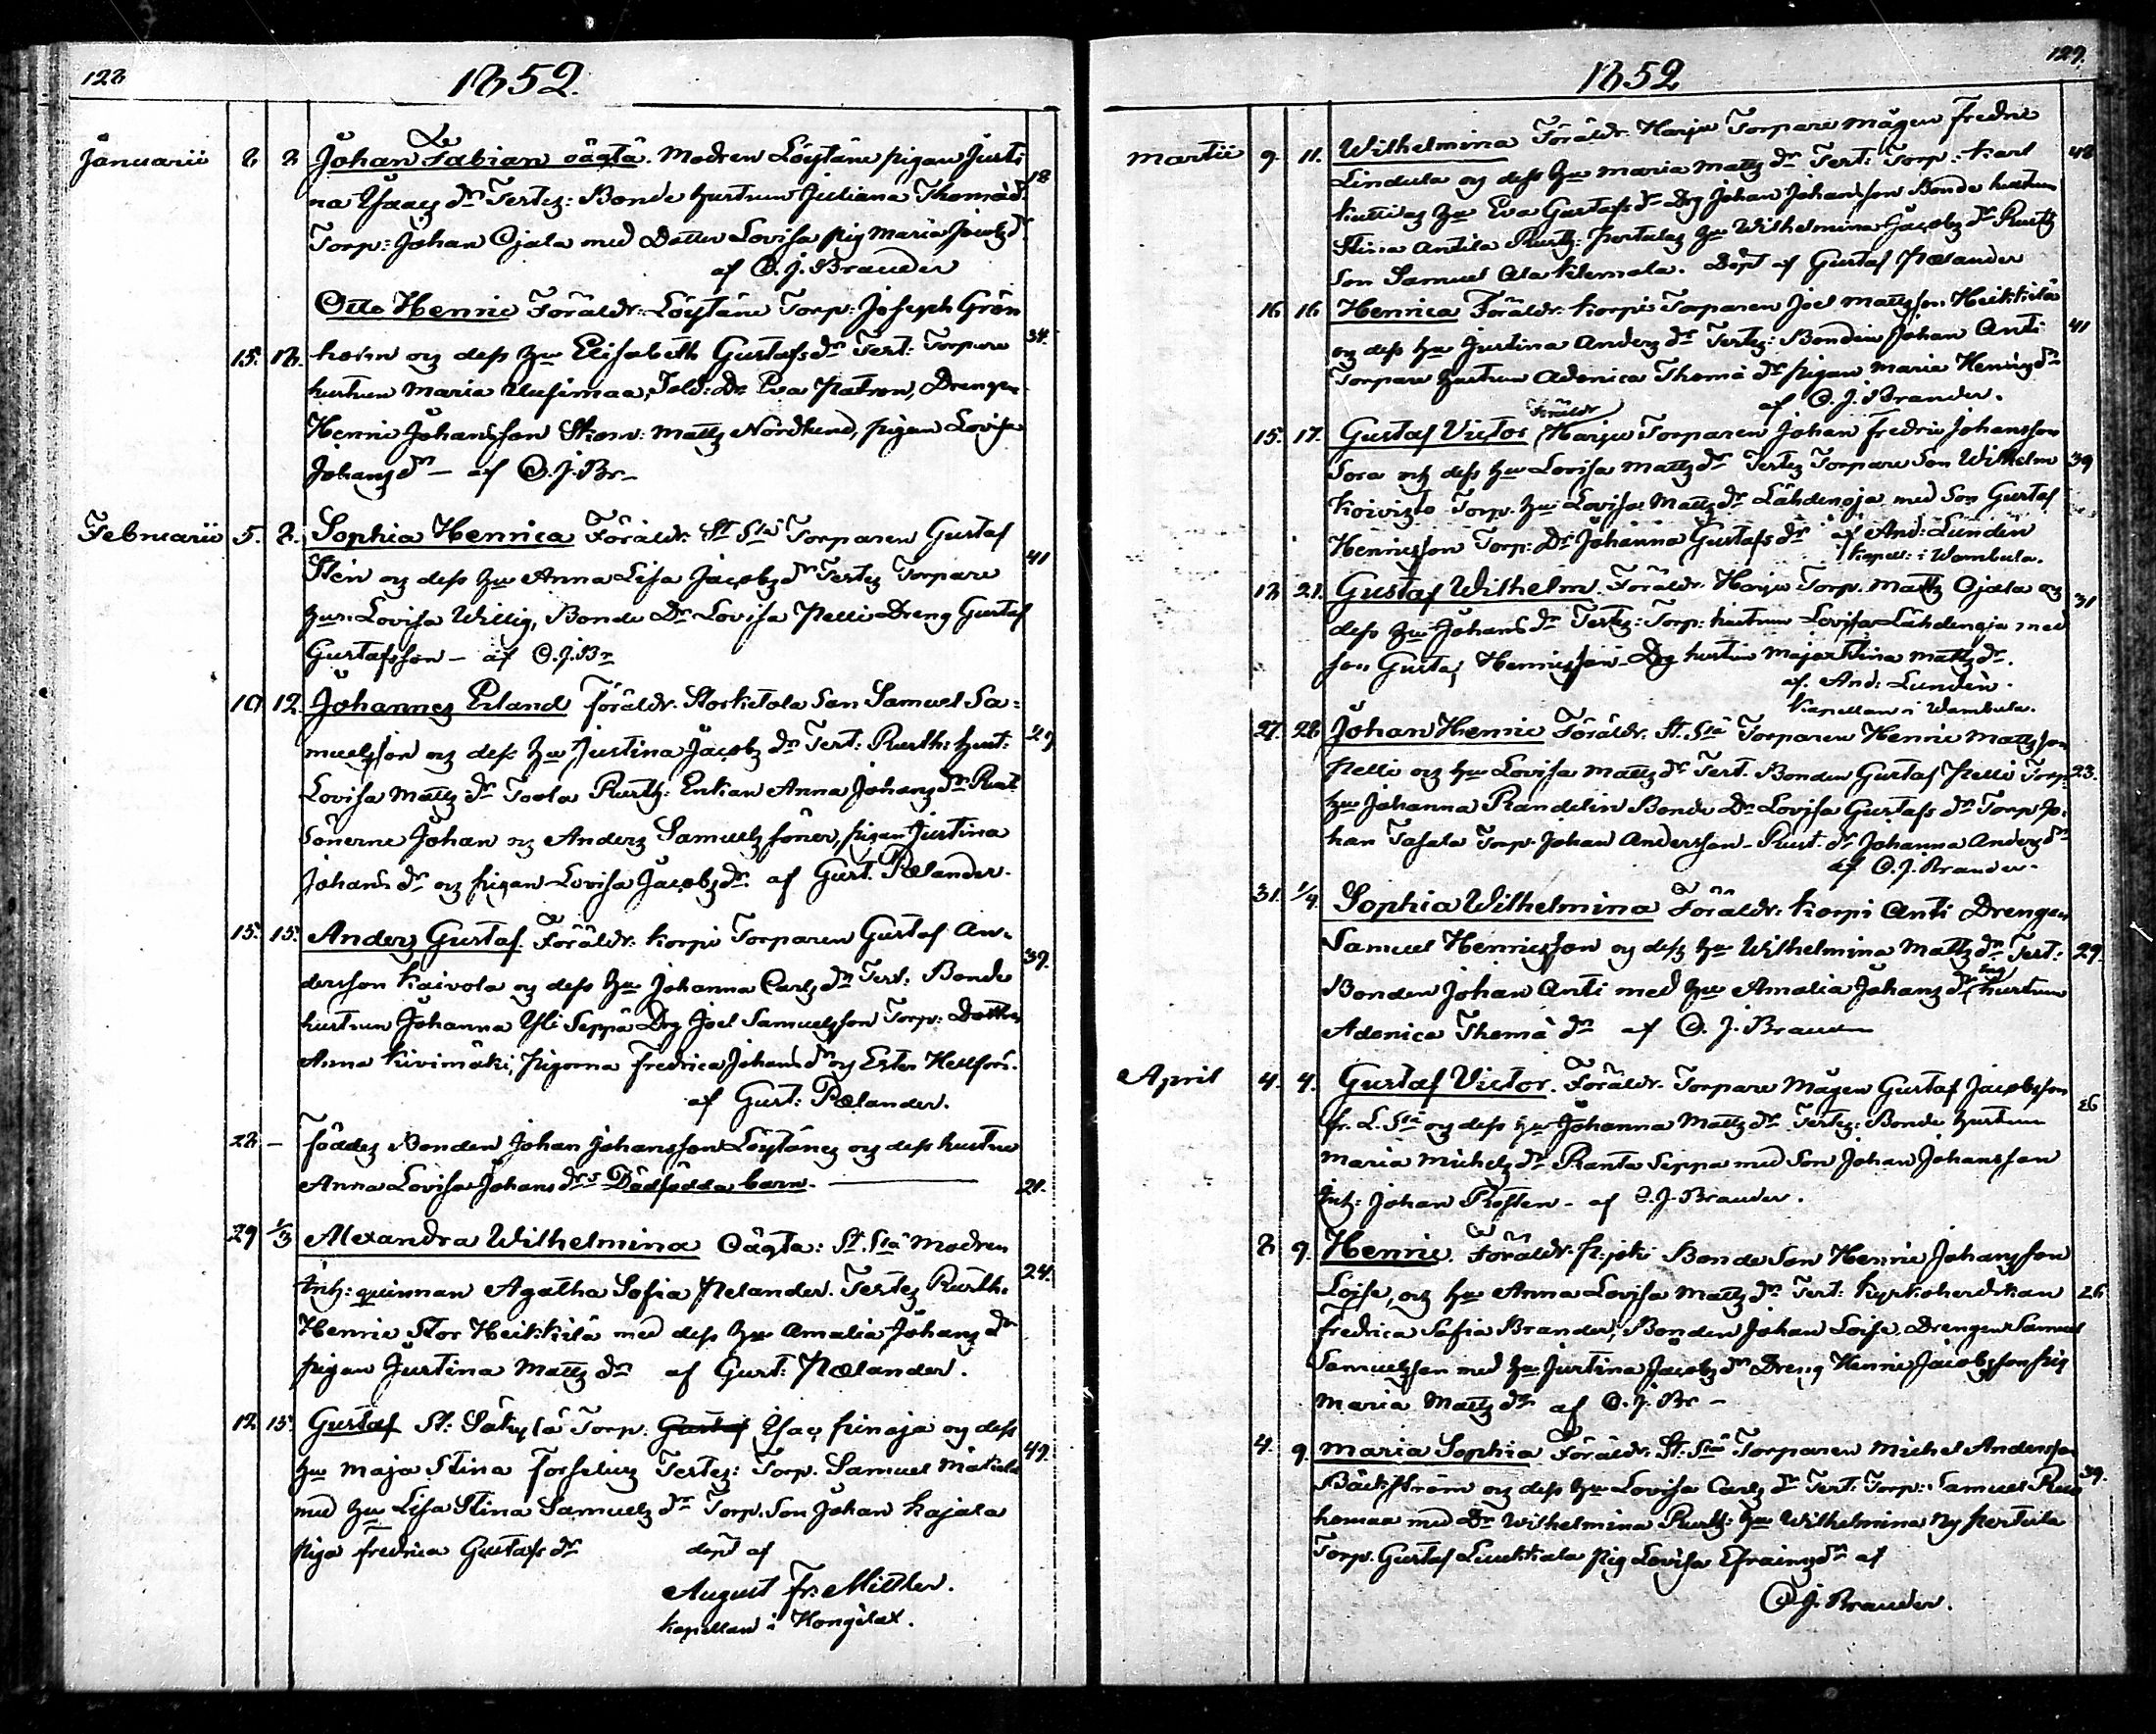 128
1852.
Januarii 8 8 Johan Fabian oägta. Modren Löytäne pigan Justi
na Isaacs dr Testes: Bonde hustrun Juliana Thomæd. 18
Torp: Johan Ojala med Dotter Lovisa pig Maria Jacobs dr
af C. J. Brander
Otto Henric Föräldr: Löytäne Torp: Joseph Grön
15. 18. holm og dess hu Elisabeth Gustafs dr Test: Torpare 34.
hustrun Maria Uusimaa, Sold: Dr Eva Patron, Drengen
Henric Johansson Skom: Matts Nordlund, pigan Lovisa
Johans dr — af C. J. Br—
Februarii 5. 8. Sophia Henrica Föräldr: St Slä Torparen Gustaf
Sten og dess hu Anna Lisa Jacobs dr Testes Torpare 41
hus. Lovisa Willig, Bonde Dr Lovisa Pelli Dreng Gustaf
Gustafsson — af C. J. Br
10 12 Johannes Erland föräldr. Storkitola Son Samuel Sa=
muelsson og dess hu Justina Jacobs dr Test: Rusth: hust: 29
Lovisa Matts dr Toola Rusth: Enkan Anna Johans dr Rust
Sönerne Johan og Anders Samuels söner, pigan Justina
Johans dr og pigan Lovisa Jacobs dr af Gust. Pælander.
15. 15. Anders Gustaf. Föräldr: Korpi Torparen Gustaf An=
dersson Kaivola og dess hu Johanna Carls dr Test: Bonde 39.
hustrun Johanna Yli Seppä Drg Joel Samuelsson Torp: Dotter
Anna Kivimäki, Pigorna Fredrica Johans dr og Ester Hellfors.
af Gust: Pælander.
22 — föddes Bonden Johan Johansson Löytänes og dess hustru
Anna Lovisa Johans drs Dödfödda barn. 21.
29 1/3 Alexandra Wilhelmina Oägta: St. Slä Modren
Inh: quinnan Agatha Sofia Pelander. Testes Rusth. 24.
Henric Stor Heikkilä med dess hu Amalia Johans dr
pigan Justina Matts dr af Gust: Pælander.
12 15 Gustaf St. Säkylä Torp: Gustaf Isac Pinoja og dess
hu Maja Stina Forselius Testes: Torp. Samuel Mäkilä 42.
med hu Lisa Stina Samuels dr Torp. Son Johan Kajala
Piga Fredrica Gustafs dr döpt af
August Fr. Mittler.
Kapellan i Hongilax.
129.
1852
Martii 9. 11. Wilhelmina Föräldr. Harju Torpare Mågen Fredric
Lindula og dess hu Maria Matts dr Test: Torp: Karl 48
hu Eva Gustafs dr Drg Johan Johansson Bonde hustrun
Stina Antila Rusth: Pertulas hu Wilhelmina Jacobs dr Rusth
Son Samuel Alakilemala. Döpt af Gustaf Pælander
16 16 Henrica Föräldr. Korpi Torparen Joel Mattsson Heikkilä
og dess hu Justina Anders dr Testes: Bonden Johan Anti 41
Torpare hustrun Adonica Thomæ dr pigan Maria Henrics dr
af C. J. Brander.
15. 17. Gustaf Victor Föräldr Harju Torparen Johan Fredric Johansson
Sora och dess hu Lovisa Matts dr Testes Torpare Son Wilhelm 39
Koivisto Torp. hu Lovisa Matts dr Lähdenoja med Son Gustaf
Henricsson Torp: Dr Johanna Gustafs dr af And: Lunden
Kapell: i Wambula.
18 21. Gustaf Wilhelm. Föräldr. Harju Torp. Matts Ojala og
dess hu Johans dr Testes: Torp: hustrun Lovisa Lähdenoja med 31
son Gustaf Henricsson Drg hustru Maja Stina Matts dr.
af. And: Lunden.
Kapellan i Wambula.
27. 28 Johan Henric Föräldr. St. Slä Torparen Henric Mattsson
Pelli og hu Lovisa Matts dr Test. Bonden Gustaf Pelli Torp: 23.
hu Johanna Randelin Bonde Dr Lovisa Gustafs dr Torp Jo.
han Tasala Torp. Johan Andersson — Rust. dr Johanna Anders dr
af C. J. Brander.
31. 1/4 Sophia Wilhelmina Föräldr: Korpi Anti Drengen
Samuel Henricsson og dess hu Wilhelmina Matts dr Test: 29.
Bonden Johan Anti med hu Amalia Johans dr hustrun
Adonica Thomæ dr af C. J. Brander
April 4. 4. Gustaf Victor. Föräldr. Torpare Mågen Gustaf Jacobsson
fr. L. Slä og dess hu Johanna Matts dr Testes: Bonde hustrun 26
Maria Michels dr Ranta Seppä med Son Johan Johansson
Inh: Johan Rosten — af C. J. Brander.
8 9. Henric. Föräldr. Bonde Son Henric Johansson
Loise, og hu Anna Lovisa Matts dr Test: Kyrkoherdskan 26
Fredrica Sofia Brander, Bonden Johan Loise. Drengen Samuel
Samuelsson med hu Justina Jacobs dr Dreng Henric Jacobsson pig
Maria Matts dr af C. J. Br —
4. 9. Maria Sophia Föräldr. St. Slä Torparen Michel Andersson
Bäckström og dess hu Lovisa Carls dr Test: Torp: Samuel Ruo 39.
homaa med Dr Wilhelmina Rusth: hu Wilhelmina Ny Perttula
Torp. Gustaf Luukkala pig Lovisa Efraims dr af
C. J. Brander.